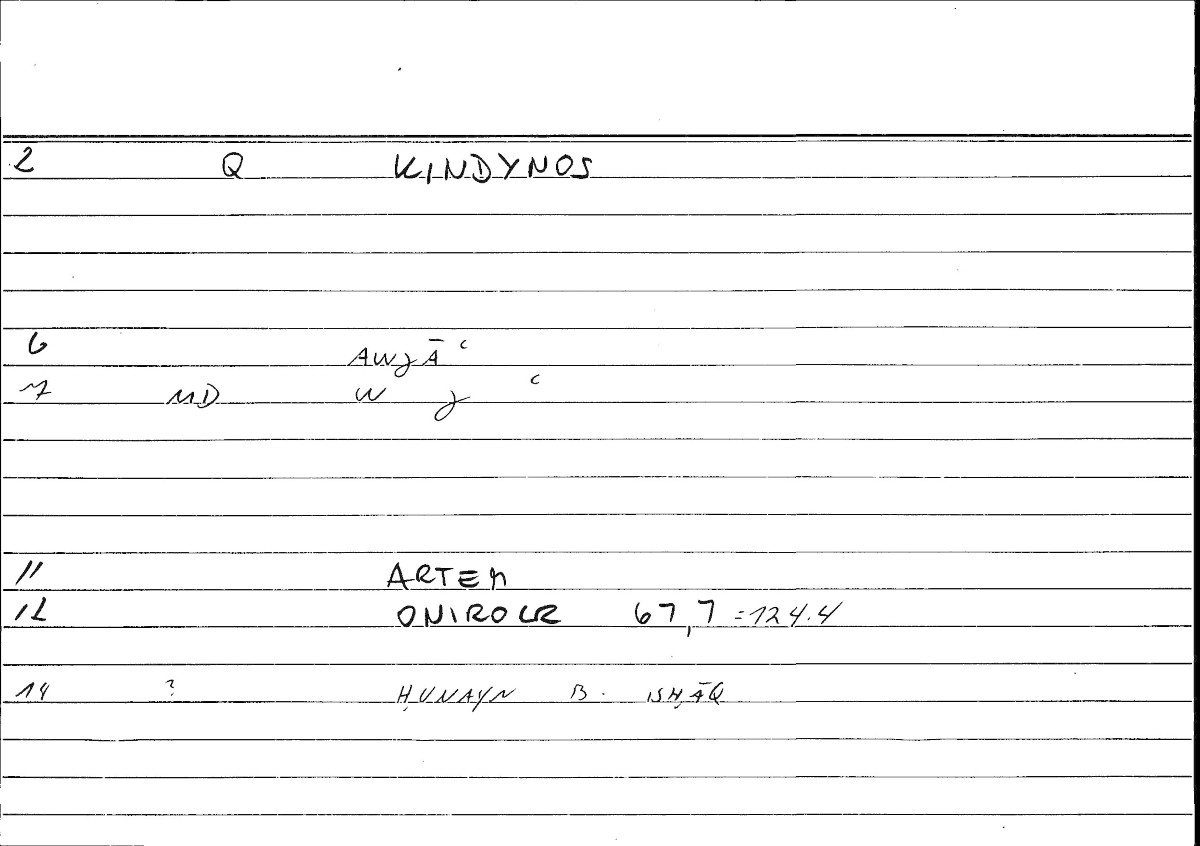 2 Q KINDYNOS
6 AWǧĀʿ
7 MD W ǧ ʿ
11 ARTEM
12 ONIROCR 67,7 =124.4
14 ? ḤUNAYN B. ISḤĀQ